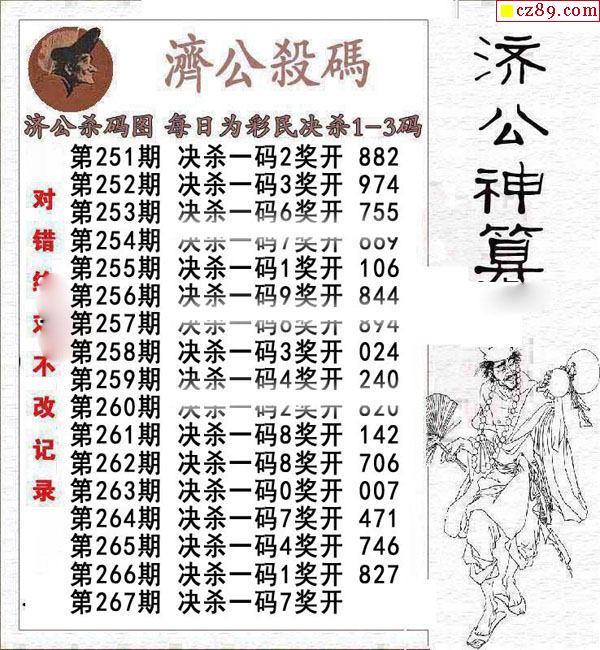 cz89.com
濟公殺碼
济公杀码图 每日为彩民决杀1-3码
第251期 决杀一码2奖开 882
第252期 决杀一码3奖开 974
第253期 决杀一码6奖开 755
第254期 决杀一码7奖开 669
第255期 决杀一码1奖开 106
第256期 决杀一码9奖开 844
第257期 决杀一码6奖开 894
第258期 决杀一码3奖开 024
第259期 决杀一码4奖开 240
第260期 决杀一码2奖开 820
第261期 决杀一码8奖开 142
第262期 决杀一码8奖开 706
第263期 决杀一码0奖开 007
第264期 决杀一码7奖开 471
第265期 决杀一码4奖开 746
第266期 决杀一码1奖开 827
第267期 决杀一码7奖开
对错不改记录
济公神算